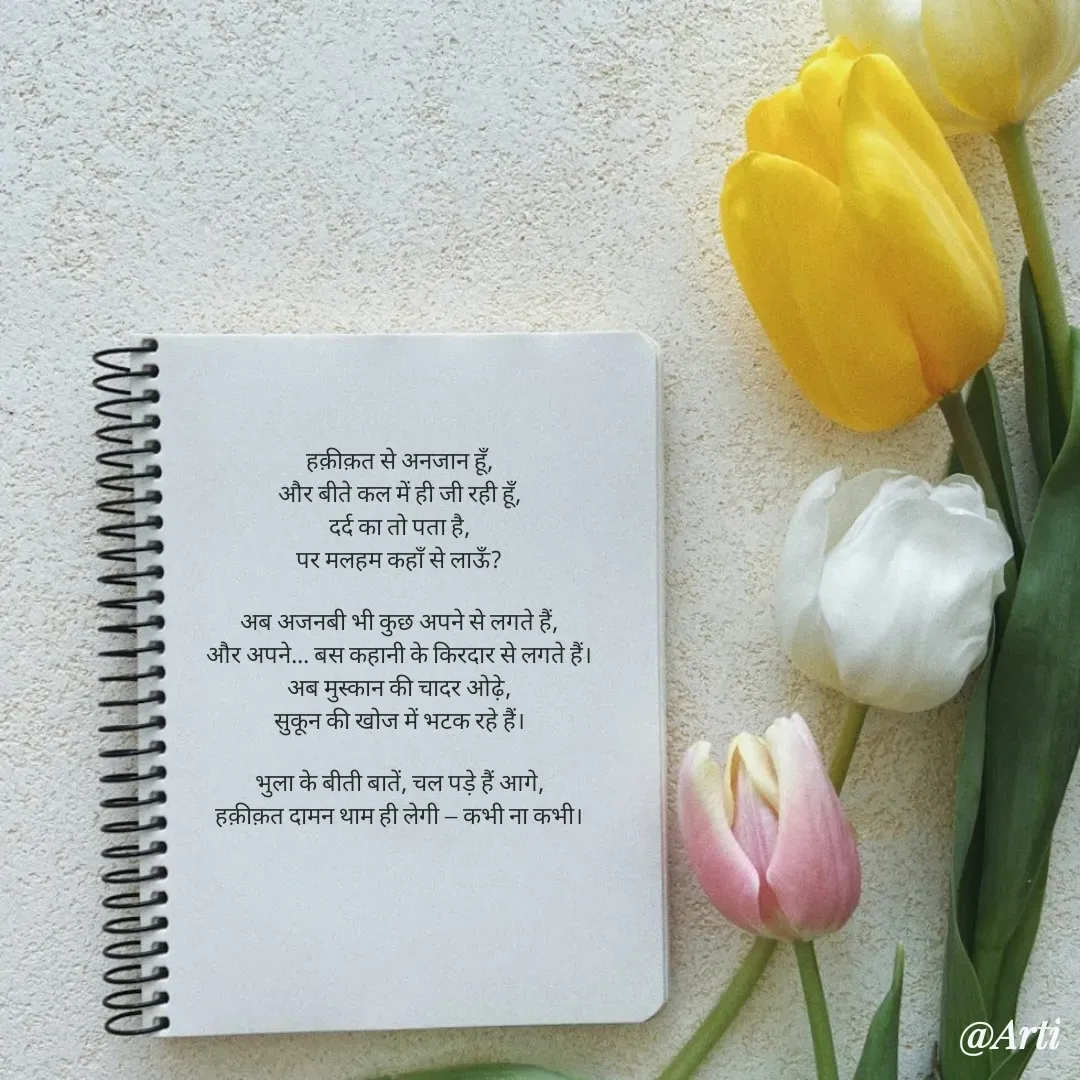 हक़ीक़त से अनजान हूँ,
और बीते कल में ही जी रही हूँ,
दर्द का तो पता है,
पर मलहम कहाँ से लाऊँ?
अब अजनबी भी कुछ अपने से लगते हैं,
और अपने... बस कहानी के किरदार से लगते हैं।
अब मुस्कान की चादर ओढ़े,
सुकून की खोज में भटक रहे हैं।
भुला के बीती बातें, चल पड़े हैं आगे,
हक़ीक़त दामन थाम ही लेगी – कभी ना कभी।
@Arti